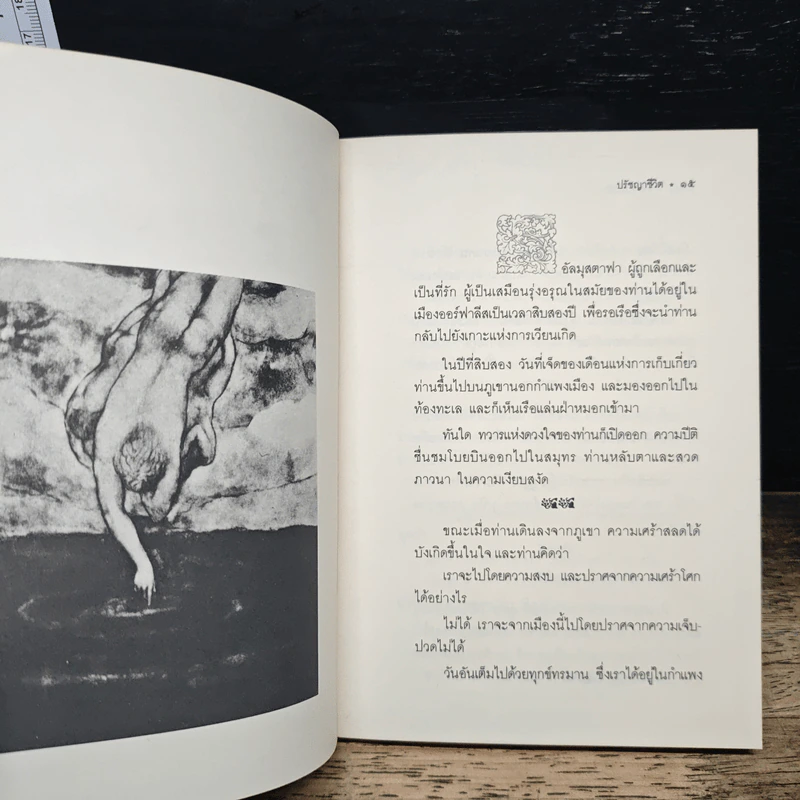 18
17
ปรัชญาชีวิต • ๑๕
อัลมุสตาฟา ผู้ถูกเลือกและ
เป็นที่รัก ผู้เป็นเสมือนรุ่งอรุณในสมัยของท่านได้อยู่ใน
เมืองออร์ฟาลีสเป็นเวลาสิบสองปี เพื่อรอเรือซึ่งจะนำท่าน
กลับไปยังเกาะแห่งการเวียนเกิด
ในปีที่สิบสอง วันที่เจ็ดของเดือนแห่งการเก็บเกี่ยว
ท่านขึ้นไปบนภูเขานอกกำแพงเมือง และมองออกไปใน
ท้องทะเล และก็เห็นเรือแล่นฝ่าหมอกเข้ามา
ทันใด ทวารแห่งดวงใจของท่านก็เปิดออก ความปีติ
ชื่นชมโบยบินออกไปในสมุทร ท่านหลับตาและสวด
ภาวนา ในความเงียบสงัด
ขณะเมื่อท่านเดินลงจากภูเขา ความเศร้าสลดได้
บังเกิดขึ้นในใจ และท่านคิดว่า
เราจะไปโดยความสงบ และปราศจากความเศร้าโศก
ได้อย่างไร
ไม่ได้ เราจะจากเมืองนี้ไปโดยปราศจากความเจ็บ-
ปวดไม่ได้
วันอันเต็มไปด้วยทุกข์ทรมาน ซึ่งเราได้อยู่ในกำแพง